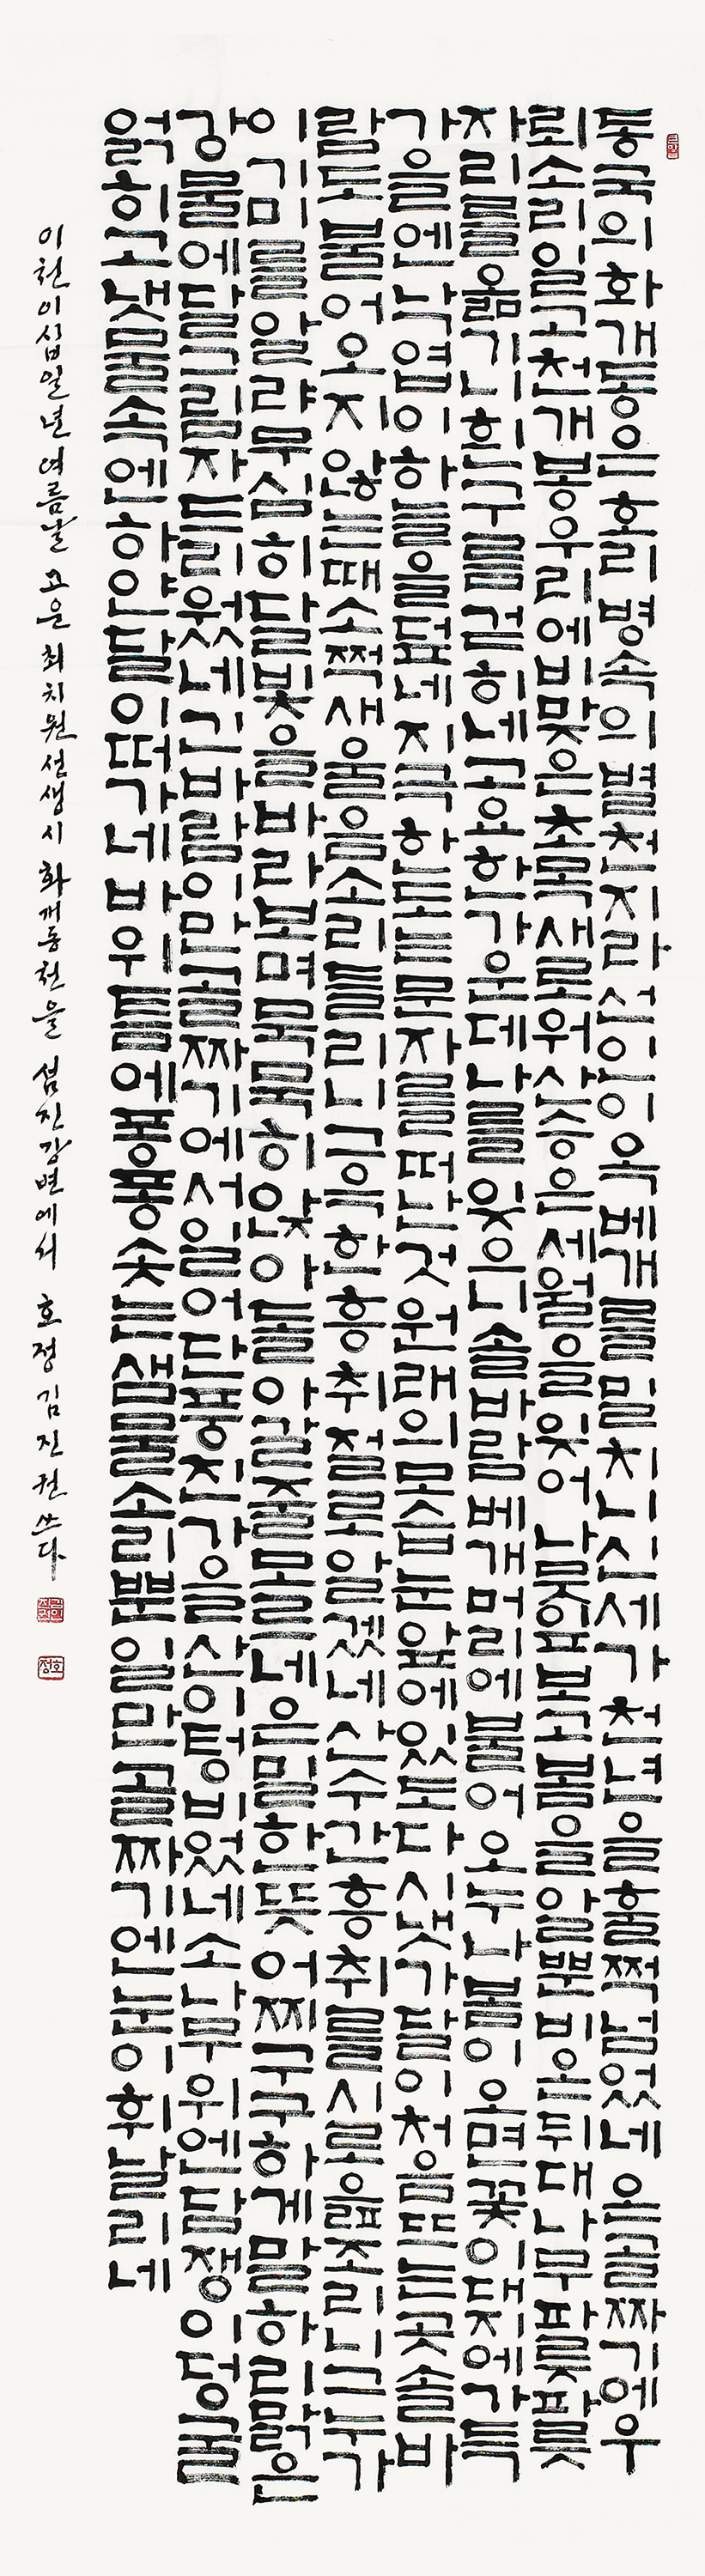 동국의화개동은호리병속의별천지라선인이옥베개를밀치니신세가천년을훌쩍넘었네온골짜기에우
뢰소리일고천개봉우리에비맞은초목새로워산승은세월을잊어나뭇잎보고봄을알뿐비온뒤대나무파릇파릇
자리를옮기니흰구름걷히네고요한가운데나를잊으니솔바람베개머리에불어오누나봄이오면꽃이대지에가득
가을엔낙엽이하늘을덮네지극한도는문자를떠난것원래의모습눈앞에있도다시냇가달이처음뜨는곳솔바
람도불어오지않는때소쩍새울음소리들리니그윽한흥취절로알겠네산수간흥취를시로읊조리니그누가
이기미를알랴무심히달빛을바라보며묵묵히앉아돌아갈줄모르네은밀한뜻어찌구구하게말하리맑은
강물에달그림자드리웠네긴바람이만골짜기에서일어단풍진가을산이텅비었네소나무위엔담쟁이덩굴
얽히고냇물속엔하얀달이떠가네바위틈에퐁퐁솟는샘물소리뿐일만골짜기엔눈이휘날리네
이천이십일년여름날 고운최치원선생시 화개동천을 섬진강변에서 호정김진권쓰다